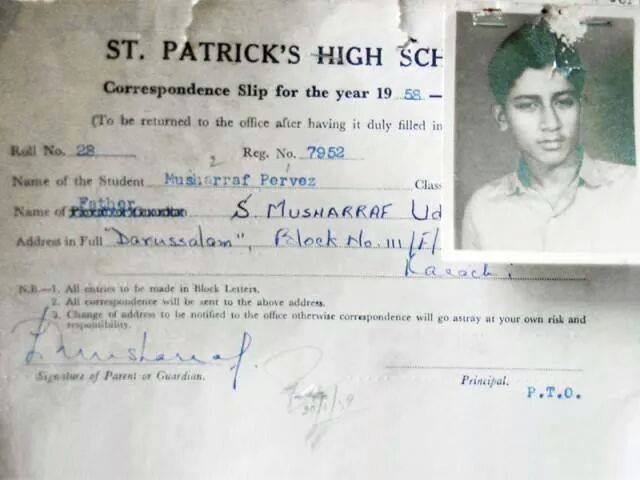 ST. PATRICK'S HIGH SCH
Correspondence Slip for the year 1958 —
(To be returned to the office after having it duly filled in
Roll No. 28 Reg. No. 7952
Name of the Student Musharraf Pervez Clas
Name of Father S. MUSHARRAF Ud
Address in Full "Darussalam", Block No. III/F/
Karachi
N.B.—1. All entries to be made in Block Letters.
2. All correspondence will be sent to the above address.
3. Change of address to be notified to the office otherwise correspondence will go astray at your own risk and
responsibility.
Signature of Parent or Guardian.
Principal.
P.T.O.